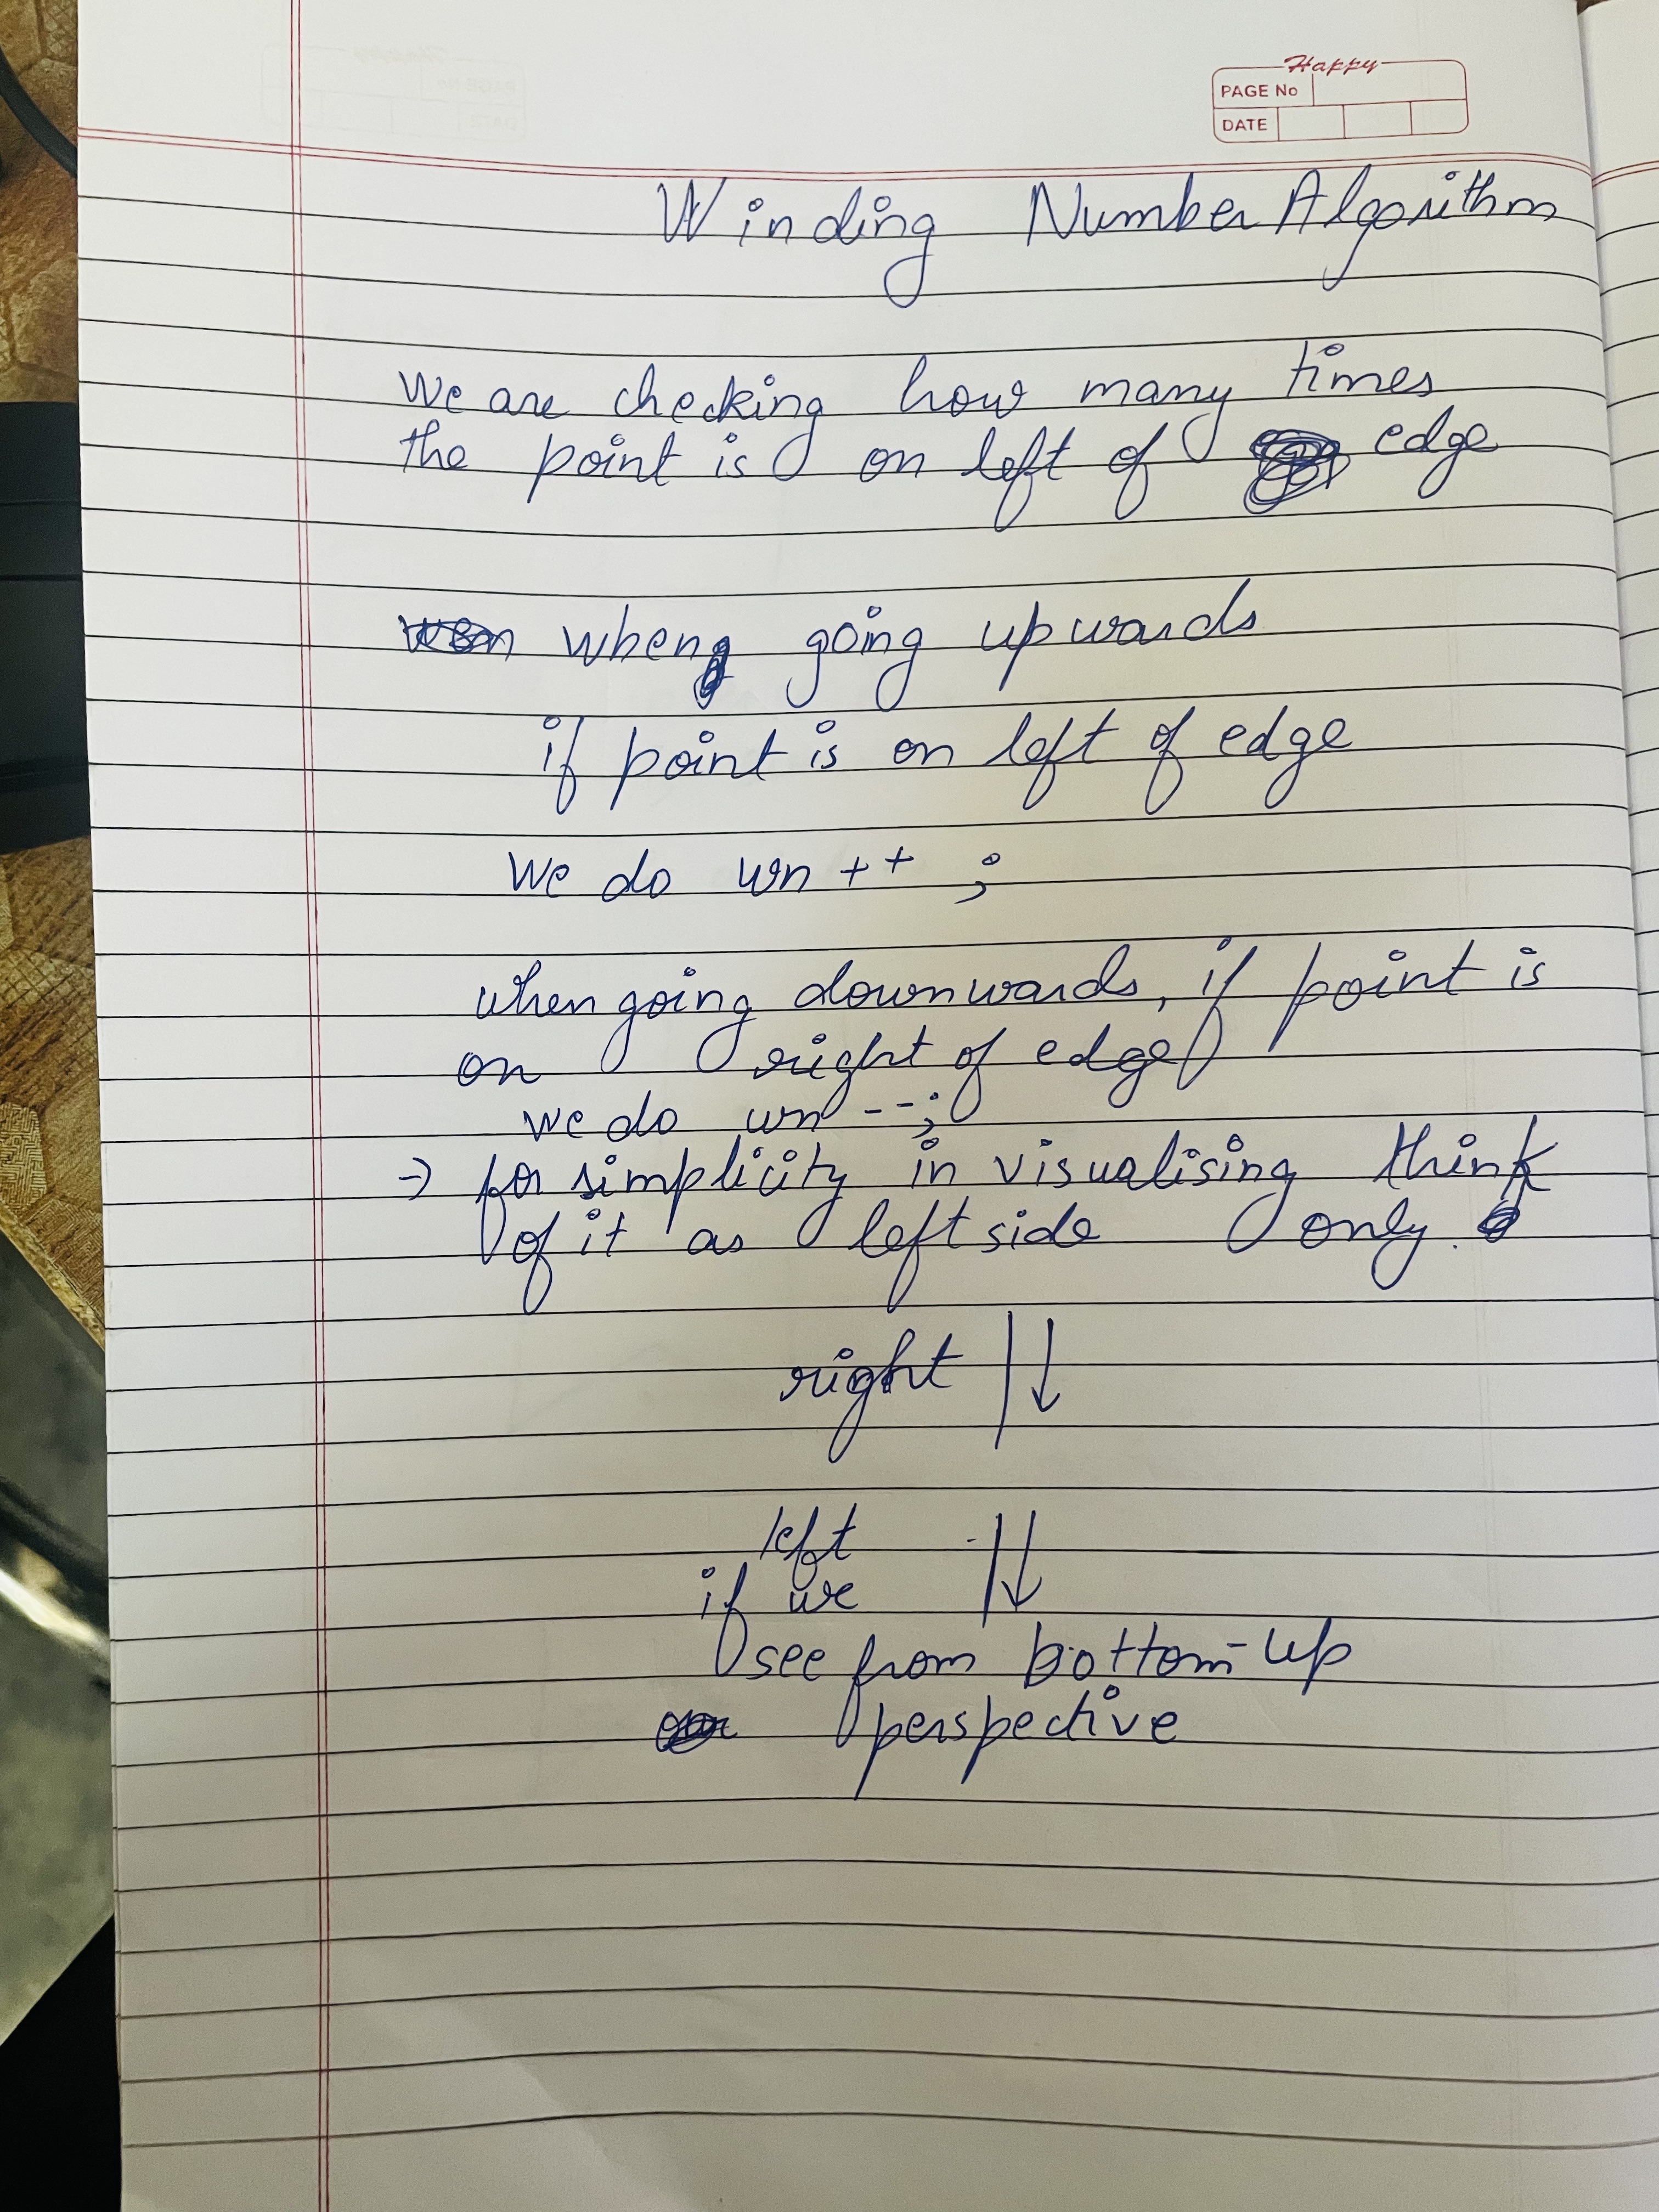 Happy
PAGE No
DATE
Winding Number Algorithm
We are checking how many times
the point is on left of edge
when going upwards
if point is on left of edge
We do wn ++ ;
when going downwards, if point is
on right of edge
we do wn --;
→ for simplicity in visualising think
of it as left side only.
right ↓
left ↓
if we
see from bottom-up
perspective